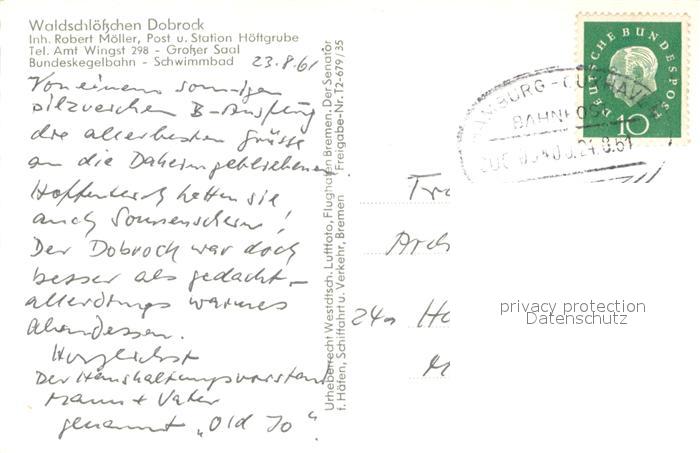 Waldschlößchen Dobrock
Inh. Robert Möller, Post u. Station Höftgrube
Tel. Amt Wingst 298 - Großer Saal
Bundeskegelbahn - Schwimmbad
23.8.61
Von einem sonnigen
pilzreichen B-Ausflug
die allerbesten Grüsse
an die Daheimgebliebenen
Hoffentlich hatten sie
auch Sonnenschein!
Der Dobrock war doch
besser als gedacht -
allerdings warmes
Abendessen.
Herzlichst
Der Haushaltungsvorstand
Mann + Vater
genannt „Old Jo“.
Urheberrecht Westdtsch. Luftfoto, Flughafen Bremen. Der Senator
f. Häfen, Schiffahrt u. Verkehr, Bremen Freigabe-Nr. 12-679/35
DEUTSCHE BUNDESPOST
10
HAMBURG - CUXHAVEN
BAHNPOST
24a
privacy protection
Datenschutz